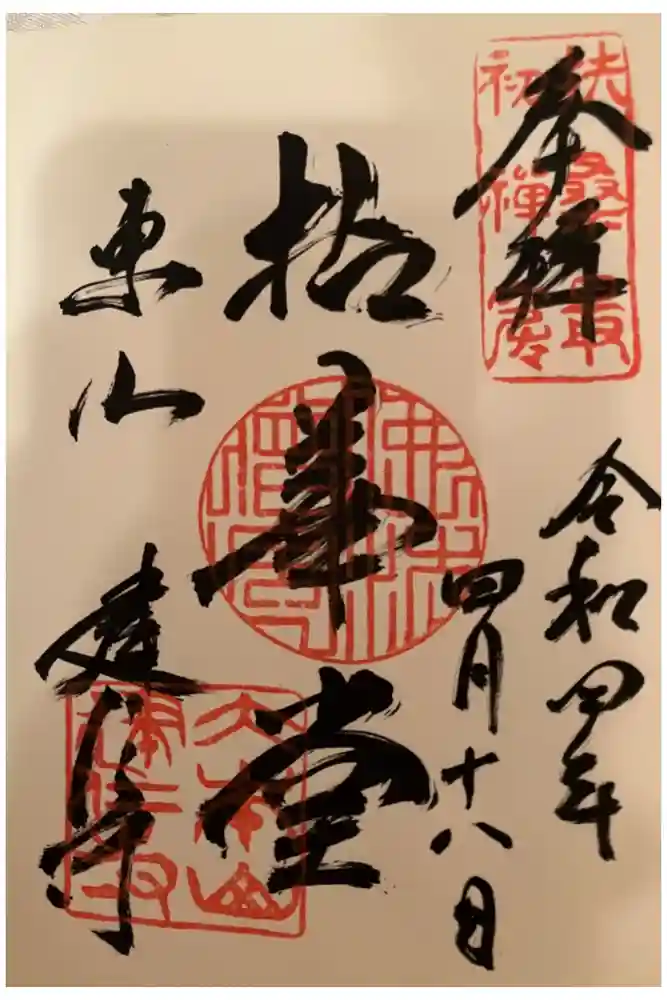 奉拝
扶桑最
初禅窟
令和四年
四月十八日
拈華堂
東山
建仁寺
大本山